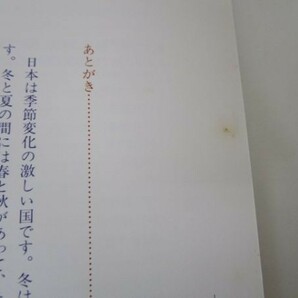 あとがき……………………
日本は季節変化の激しい国です。冬は
す。冬と夏の間には春と秋があって、